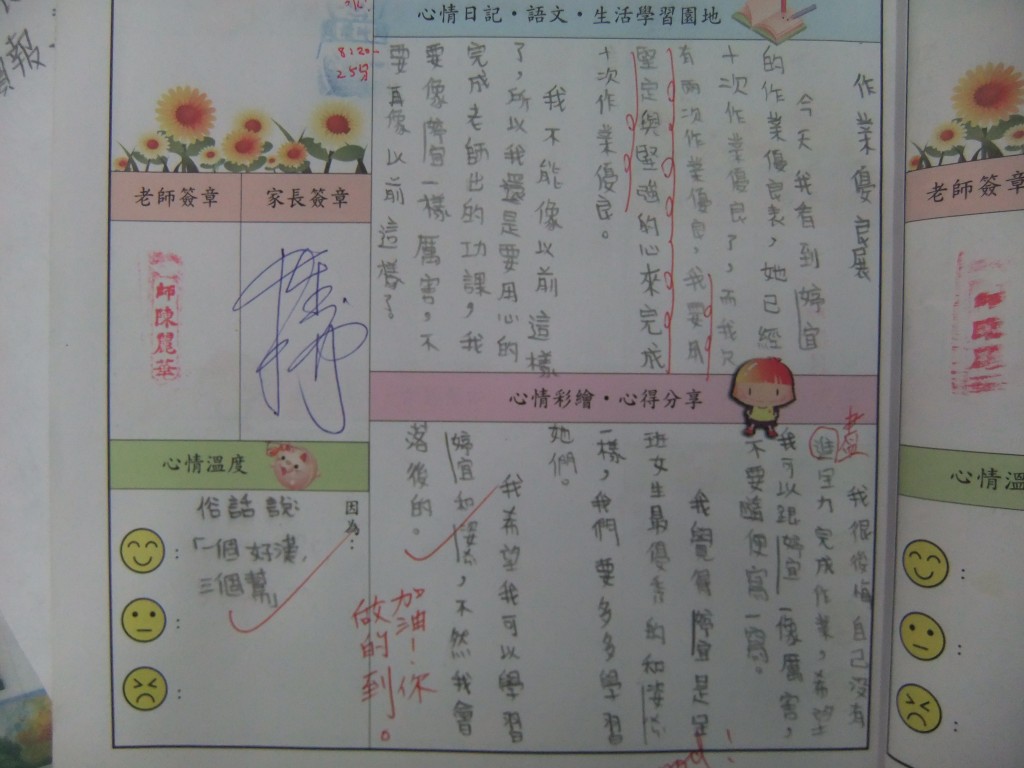 心情日記・語文・生活學習園地
作業優良展
今天我看到婷宜
的作業優良表，她已經
十次作業優良了，而我只
有兩次作業優良，我要用
堅定與堅強的心來完成
十次作業優良。
我不能像以前這樣
了，所以我還是要用心的
完成老師出的功課，我
要像婷宜一樣厲害，不
要再像以前這樣了
8:20
25分
老師簽章
家長簽章
師陳麗華
心情彩繪・心得分享
我很後悔自己沒有
盡
進全力完成作業，希望
我可以跟婷宜一像厲害，
不要隨便寫一寫。
我覺得婷宜是全
班女生最優秀的和姿
一樣，我們要多多學習
她們。
我希望我可以學習
婷宜和姿，不然我會
落後的。
加油！你
做的到。
心情溫度
因為：
俗話說：
「一個好漢，
三個幫」
老師簽章
心情溫